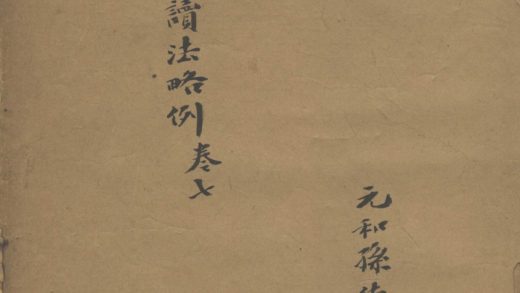 元和孫
讀法略例卷七